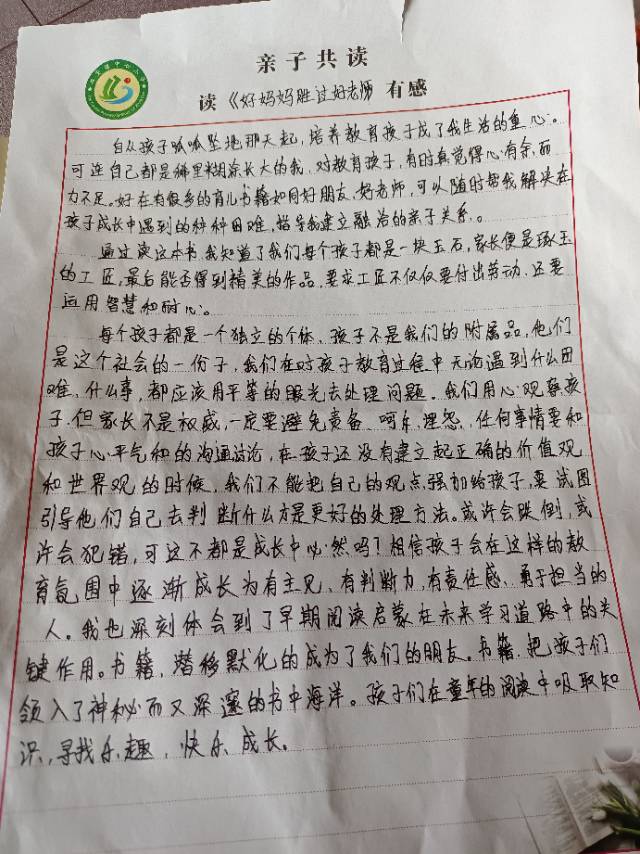 亲子共读
读《好妈妈胜过好老师》有感
自从孩子呱呱坠地那天起，培养教育孩子成了我生活的重心。
可连自己都是稀里糊涂长大的我，对教育孩子，有时真觉得心有余而
力不足。好在有很多的育儿书籍如同好朋友、好老师，可以随时帮我解决在
孩子成长中遇到的种种困难，指导我建立融洽的亲子关系。
通过读这本书，我知道了我们每个孩子都是一块玉石，家长便是琢玉
的工匠，最后能否得到精美的作品，要求工匠不仅仅要付出劳动，还要
运用智慧和耐心。
每个孩子都是一个独立的个体，孩子不是我们的附属品，他们
是这个社会的一份子，我们在对孩子教育过程中无论遇到什么困
难，什么事，都应该用平等的眼光去处理问题。我们用心观察孩
子，但家长不是权威，一定要避免责备、呵斥、埋怨，任何事情要和
孩子心平气和的沟通讨论，在孩子还没有建立起正确的价值观
和世界观的时候，我们不能把自己的观点强加给孩子，要试图
引导他们自己去判断什么才是更好的处理方法。或许会跌倒，或
许会犯错，可这不都是成长中必然吗？相信孩子会在这样的教
育氛围中逐渐成长为有主见、有判断力，有责任感、勇于担当的
人。我也深刻体会到了早期阅读启蒙在未来学习道路中的关
键作用。书籍，潜移默化的成为了我们的朋友。书籍，把孩子们
领入了神秘而又深邃的书中海洋。孩子们在童年的阅读中吸取知
识，寻找乐趣，快乐成长。